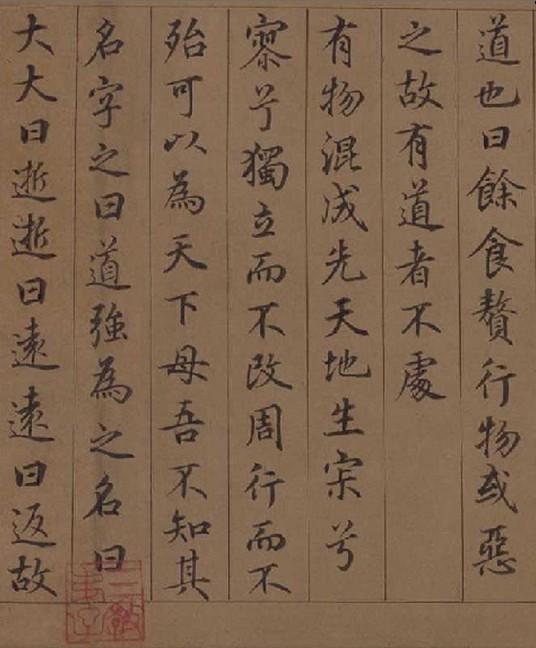 道也曰餘食贅行物或惡
之故有道者不處
有物混成先天地生宋兮
寥兮獨立而不改周行而不
殆可以為天下母吾不知其
名字之曰道強為之名曰
大大曰逝逝曰遠遠曰返故